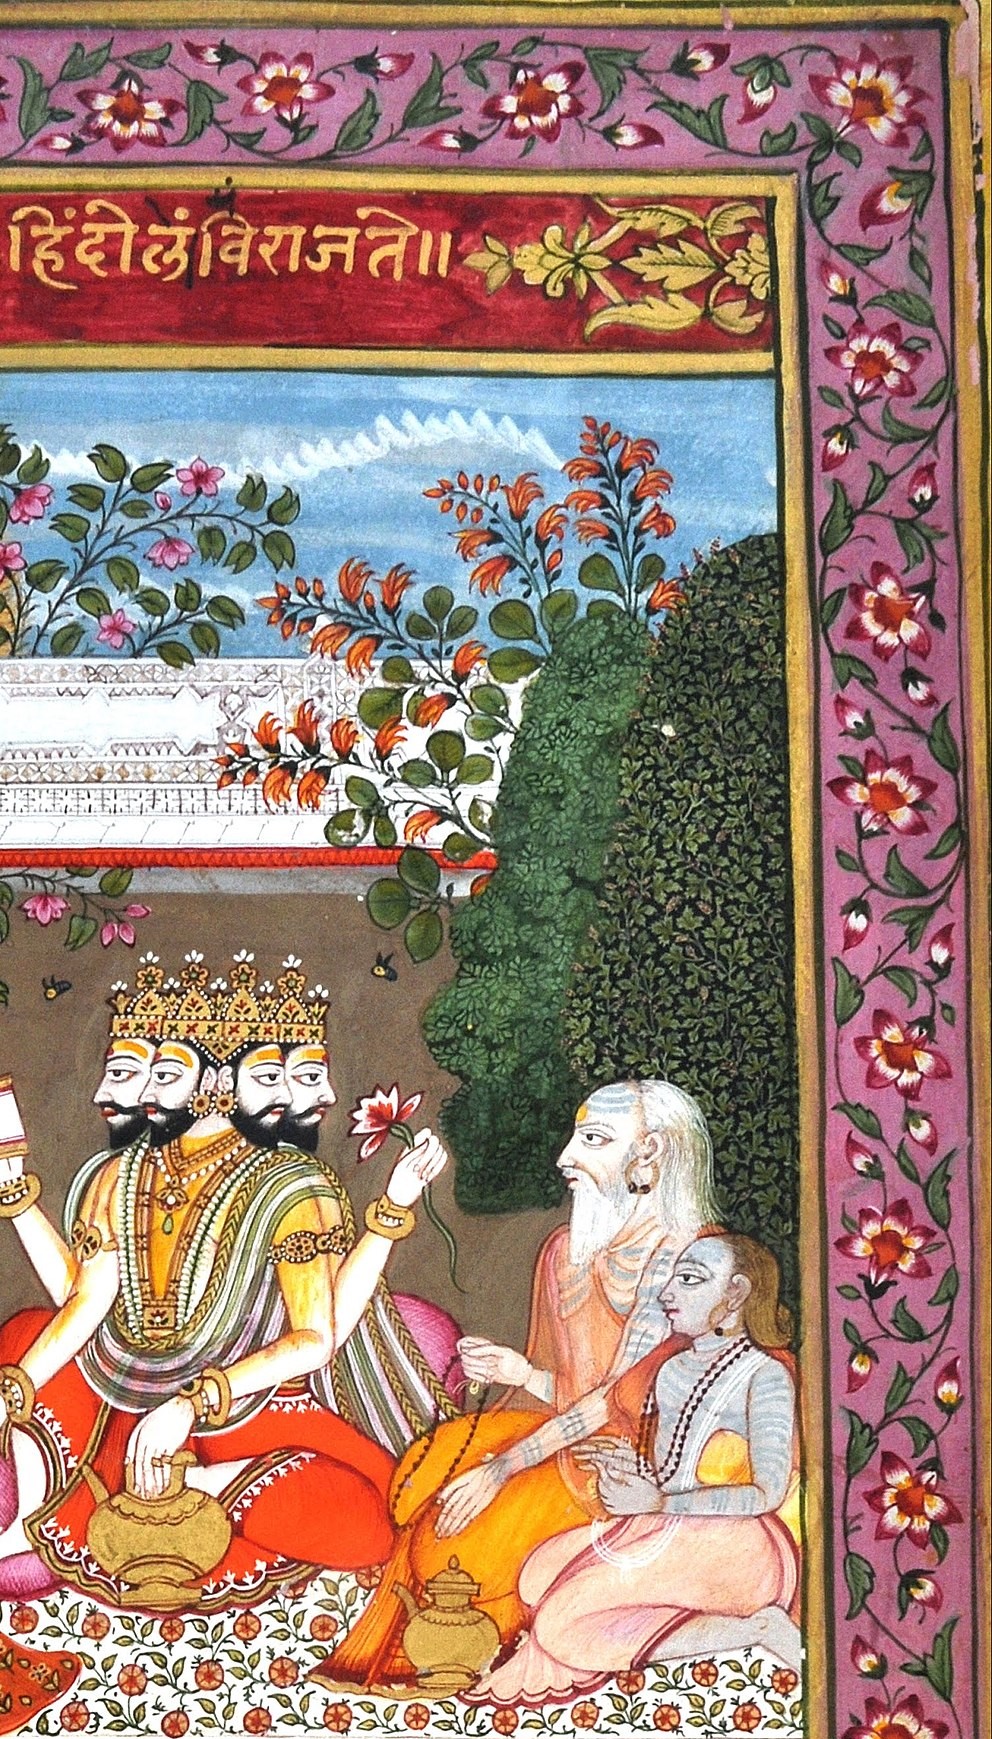 हिंदीलंविराजते॥